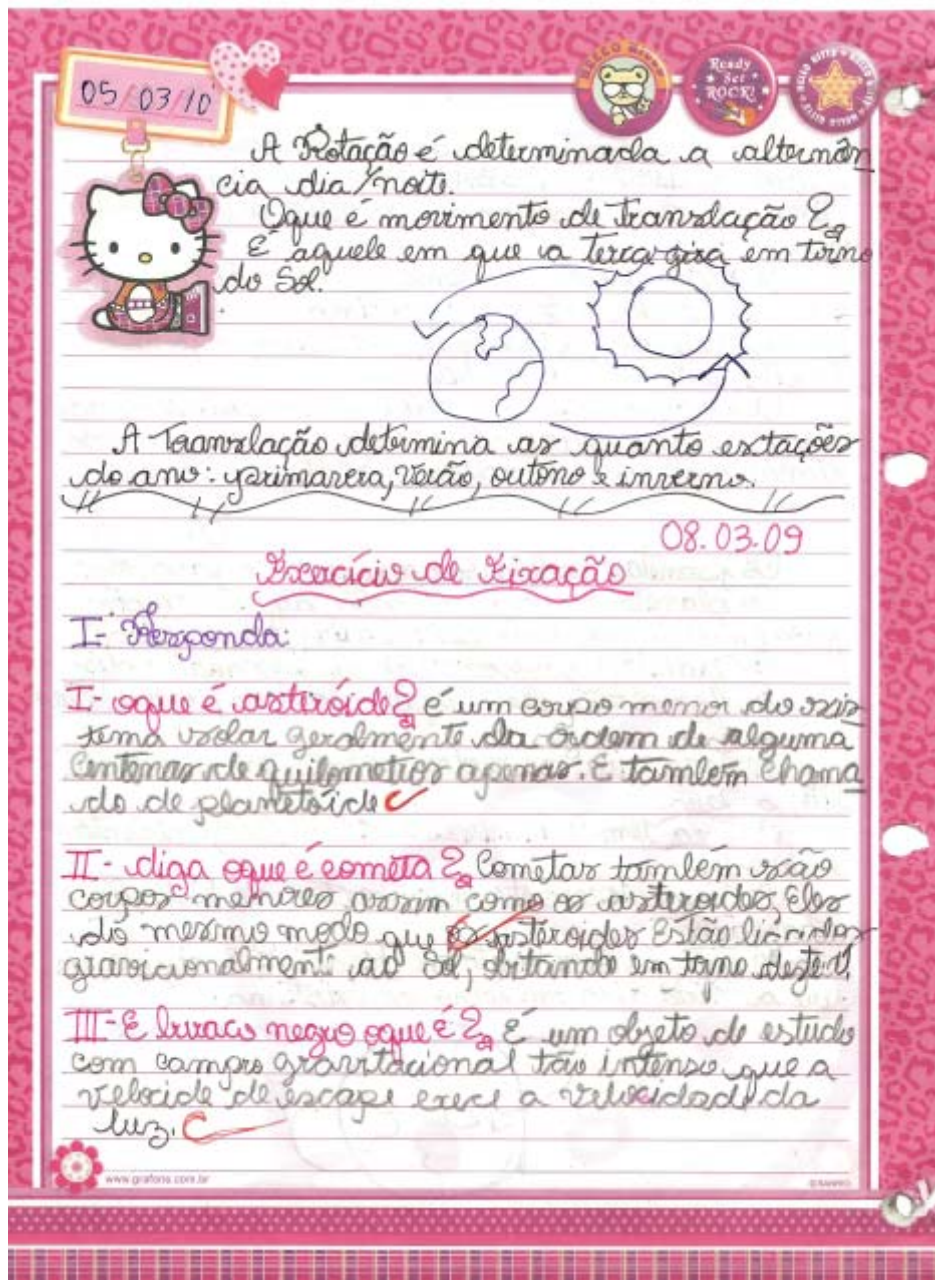 05/03/10
Ready
Set
ROCK!
A Rotação é determinada a alternân
cia dia/noite.
Oque é movimento de Translação?
É aquele em que a terra gira em torno
do Sol.
A Translação determina as quanto estações
do ano: primarera, Verão, outono e inverno.
08.03.09
Exercício de Fixação
I- Responda:
I- oque é asteróide? é um corpo menor do sis
tema solar geralmente da ordem de alguma
Centenas de quilometros apenas. E também chama
do de planetóide
II- diga oque é cometa? Cometas também são
corpos menores assim como os asteroides. Eles
do mesmo modo que os asteroides Estão
gravicionalmente ao Sol, orbitando em torno deste
III- E buraco negro oque é? É um objeto de estudo
com campo gravitacional tão intenso que a
velocide de escape exece a velocidade da
luz.
www.grafons.com.br
©SANRIO